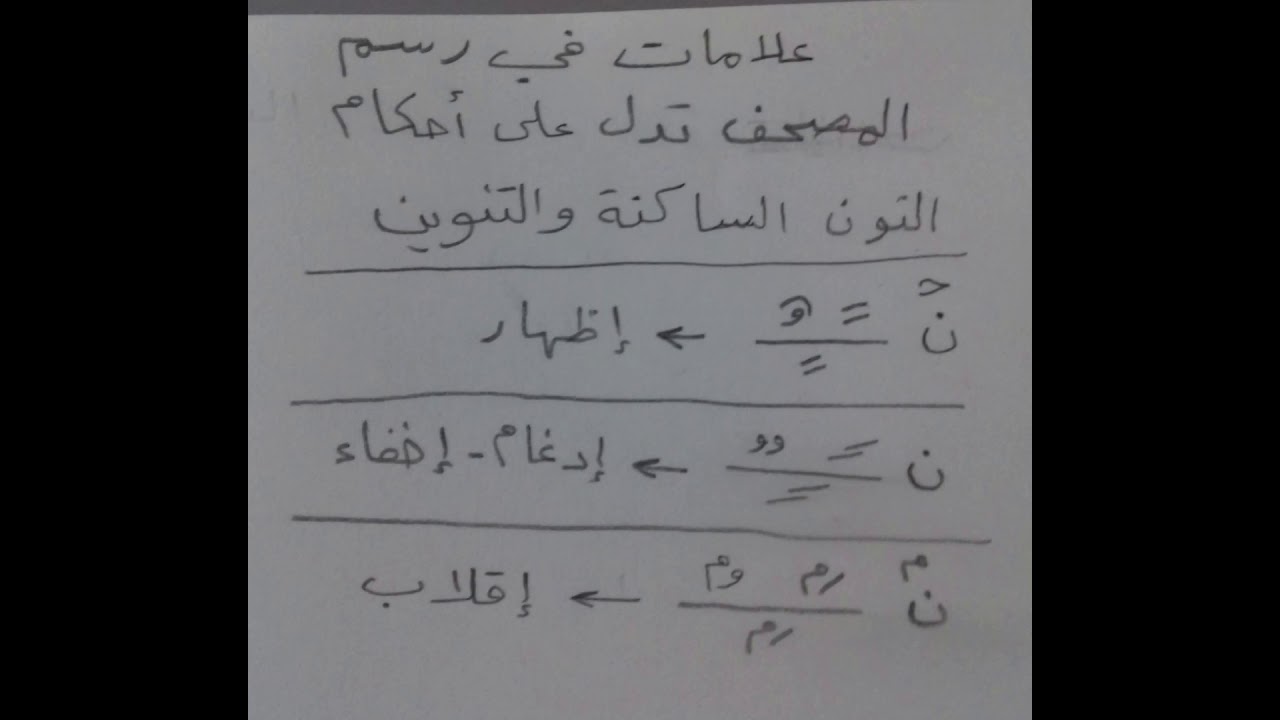 علامات في رسم
المصحف تدل على أحكام
النون الساكنة والتنوين
نْ ـً ـٌ ـٍ ← إظهار
ن ـً وو ـٍ ← إدغام - إخفاء
نۢ ـَم وم ـِم ← إقلاب